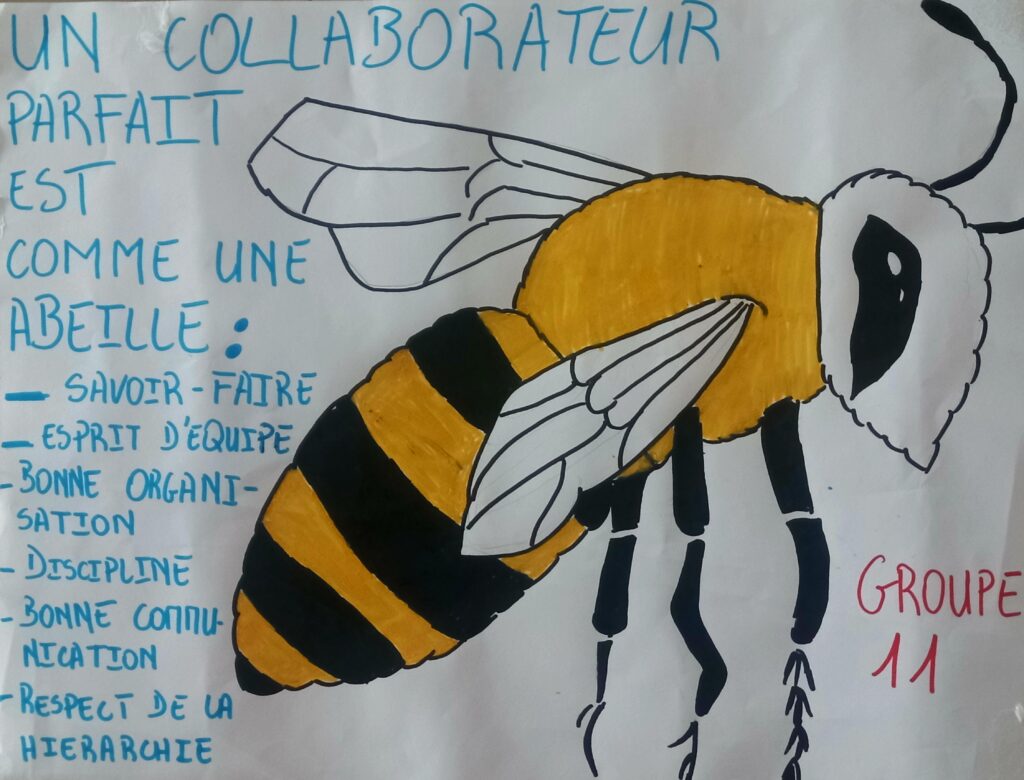 UN COLLABORATEUR
PARFAIT
EST
COMME UNE
ABEILLE :
- SAVOIR-FAIRE
- ESPRIT D'EQUIPE
- BONNE ORGANI-
SATION
- DISCIPLINE
- BONNE COMMU-
NICATION
- RESPECT DE LA
HIERARCHIE
GROUPE
11